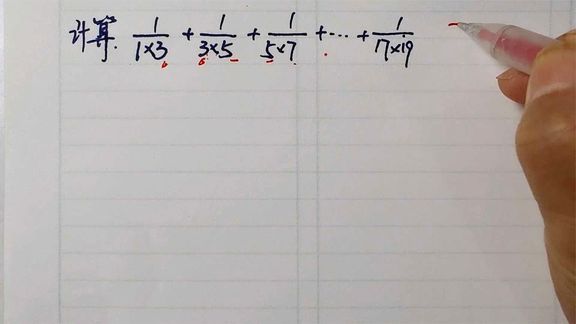 计算. \frac{1}{1×3} + \frac{1}{3×5} + \frac{1}{5×7} + ··· + \frac{1}{17×19}